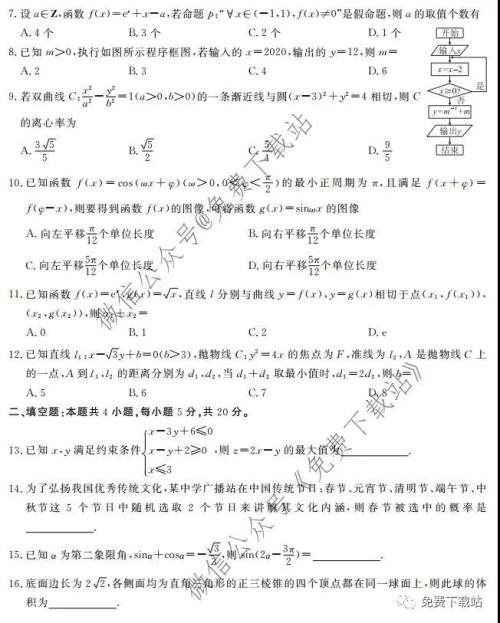 7. 设 a∈Z, 函数 f(x)=eˣ+x−a, 若命题 p: "∀x∈(−1,1), f(x)≠0"是假命题, 则 a 的取值个数有
A. 4 个 B. 3 个 C. 2 个 D. 1 个
8. 已知 m>0, 执行如图所示程序框图, 若输入的 x=2020, 输出的 y=12, 则 m=
A. 2 B. 3 C. 4 D. 6
开始
输入x
x=x−2
x≥0?
是
否
y=m⁻ˣ+m
输出y
结束
9. 若双曲线 C: x²/a²−y²/b²=1(a>0,b>0)的一条渐近线与圆(x−3)²+y²=4 相切, 则 C
的离心率为
A. 3√5/5 B. √5/2 C. 5/4 D. 9/5
10. 已知函数 f(x)=cos(ωx+φ)(ω>0,0<φ<π/2)的最小正周期为 π, 且满足 f(x+φ)=
f(φ−x), 则要得到函数 f(x)的图像, 可将函数 g(x)=sinωx 的图像
A. 向左平移π/12个单位长度 B. 向右平移π/12个单位长度
C. 向左平移5π/12个单位长度 D. 向右平移5π/12个单位长度
11. 已知函数 f(x)=eˣ, g(x)=√x, 直线 l 分别与曲线 y=f(x), y=g(x)相切于点(x₁,f(x₁)),
(x₂,g(x₂)), 则 x₁+x₂=
A. 0 B. 1 C. 2 D. e
12. 已知直线 l₁: x−√3y+b=0(b>3), 抛物线 C: y²=4x 的焦点为 F, 准线为 l₂, A 是抛物线 C 上
的一点, A 到 l₁, l₂ 的距离分别为 d₁, d₂, 当 d₁+d₂ 取最小值时, d₁=2d₂, 则 b=
A. 5 B. 6 C. 7 D. 8
二、填空题: 本题共 4 小题, 每小题 5 分, 共 20 分。
13. 已知 x, y 满足约束条件{x−3y+6≤0
x−y+2≥0
x≤3
, 则 z=2x−y 的最大值为________.
14. 为了弘扬我国优秀传统文化, 某中学广播站在中国传统节日: 春节、元宵节、清明节、端午节、中
秋节这 5 个节日中随机选取 2 个节日来讲解其文化内涵, 则春节被选中的概率是
________.
15. 已知 α 为第二象限角, sinα+cosα=−√3/3, 则 sin(2α−3π/2)=________.
16. 底面边长为 2√2, 各侧面均为直角三角形的正三棱锥的四个顶点都在同一球面上, 则此球的体
积为________.
微信公众号@免费下载站
微信公众号《免费下载站》
免费下载站